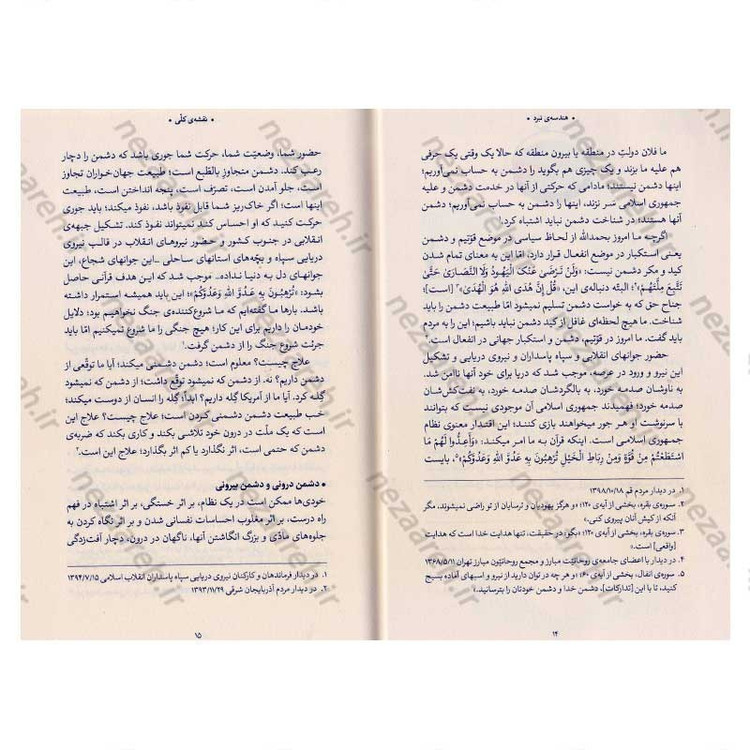 • هندسه‌ی نبرد •
ما فلان دولتِ در منطقه یا بیرون منطقه که حالا یک وقتی یک حرفی
هم علیه ما بزند و یک چیزی هم بگوید را دشمن به حساب نمی‌آوریم؛
اینها دشمن نیستند؛ مادامی که حرکتی از آنها در خدمت دشمن و علیه
جمهوری اسلامی سَر نزند، اینها را دشمن به حساب نمی‌آوریم؛ دشمن
آنها هستند؛ در شناخت دشمن نباید اشتباه کرد.۱
اگرچه ما امروز بحمدالله از لحاظ سیاسی در موضع قوّتیم و دشمن
یعنی استکبار در موضع انفعال قرار دارد، امّا این به معنای تمام شدن
کید و مکر دشمن نیست؛ «وَلَنْ تَرْضىٰ عَنْكَ الْيَهُودُ وَلَا النَّصَارَىٰ حَتَّىٰ
تَتَّبِعَ مِلَّتَهُمْ»۲؛ البتّه دنباله‌ی این، «قُلْ إِنَّ هُدَى اللَّهِ هُوَ الْهُدَىٰ»۳ [است]؛
جناح حق که به خواست دشمن تسلیم نمیشود امّا طبیعت دشمن را باید
شناخت. ما هیچ لحظه‌ای غافل از کید دشمن نباید باشیم؛ این را به مردم
باید گفت. ما امروز در قوّتیم، دشمن و استکبار جهانی در انفعال است.۴
حضور جوانهای انقلابی و سپاه پاسداران و نیروی دریایی و تشکیل
این نیرو و ورود در عرصه، موجب شد که دریا برای خود آنها ناامن شد.
به ناوشان صدمه خورد، به بالگردشان صدمه خورد، به نفت‌کش‌شان
صدمه خورد؛ فهمیدند جمهوری اسلامی آن موجودی نیست که بتوانند
با سرنوشت او هر جور میخواهند بازی کنند؛ این اقتدار معنوی نظام
جمهوری اسلامی است. اینکه قرآن به ما امر میکند: «وَأَعِدُّوا لَهُمْ مَا
اسْتَطَعْتُمْ مِنْ قُوَّةٍ وَمِنْ رِبَاطِ الْخَيْلِ تُرْهِبُونَ بِهِ عَدُوَّ اللَّهِ وَعَدُوَّكُمْ»۵، بایست
۱. در دیدار مردم قم ۱۳۹۸/۱۰/۱۸
۲. سوره‌ی بقره، بخشی از آیه‌ی ۱۲۰؛ «و هرگز یهودیان و ترسایان از تو راضی نمیشوند، مگر
آنکه از کیش آنان پیروی کنی.»
۳. سوره‌ی بقره، بخشی از آیه‌ی ۱۲۰؛ «بگو: در حقیقت، تنها هدایت خدا است که هدایت
[واقعی] است.»
۴. در دیدار با اعضای جامعه‌ی روحانیّت مبارز و مجمع روحانیّون مبارز تهران ۱۳۶۸/۵/۱۱
۵. سوره‌ی انفال، بخشی از آیه‌ی ۶۰؛ «و هر چه در توان دارید از نیرو و اسبهای آماده بسیج
کنید، تا با این [تدارکات]، دشمن خدا و دشمن خودتان را بترسانید.»
۱۴
• نقشه‌ی کلّی •
حضور شما، وضعیّت شما، حرکت شما جوری باشد که دشمن را دچار
رعب کند. دشمن متجاوزِ بالطّبع است؛ طبیعت جهان‌خواران تجاوز
است، جلو آمدن است، تصرّف است، پنجه انداختن است، طبیعت
آنها این است؛ اگر خاک‌ریز شما قابل نفوذ باشد، نفوذ میکند؛ باید جوری
حرکت کنید که او احساس کند نمیتواند نفوذ کند. تشکیل جبهه‌ی
انقلابی در جنوب کشور و حضور نیروهای انقلاب در قالب نیروی
دریایی سپاه و بچّه‌های استانهای ساحلی _این جوانهای شجاع، این
جوانهای دل به دریا نداده_ موجب شد که این هدف قرآنی حاصل
بشود؛ «تُرْهِبُونَ بِهِ عَدُوَّ اللَّهِ وَعَدُوَّكُمْ»؛ این باید همیشه استمرار داشته
باشد. بارها ما گفته‌ایم که ما شروع‌کننده‌ی جنگ نخواهیم بود؛ دلایل
خودمان را داریم برای این کار؛ هیچ جنگی را ما شروع نمیکنیم امّا باید
جرئت شروع جنگ را از دشمن گرفت.۱
علاج چیست؟ معلوم است؛ دشمن دشمنی میکند؛ آیا ما توقّعی از
دشمن داریم؟ نه، از دشمن که نمیشود توقّع داشت؛ از دشمن که نمیشود
گِله کرد. آیا ما از آمریکا گِله داریم؟ ابداً؛ گِله را از دوست میکنند؛ دشمن
خب طبیعت دشمن دشمنی کردن است؛ علاج چیست؟ علاج این
است که یک ملّت در درون خود تلاشی بکند و کاری بکند که ضربه‌ی
دشمن که حتمی است، اثر نگذارد یا کم اثر بگذارد؛ علاج این است.۲
• دشمن درونی و دشمن بیرونی
خودی‌ها ممکن است در یک نظام، بر اثر خستگی، بر اثر اشتباه در فهم
راه درست، بر اثر مغلوب احساسات نفسانی شدن و بر اثر نگاه کردن به
جلوه‌های مادّی و بزرگ انگاشتن آنها، ناگهان در درون، دچار آفت‌زدگی
۱. در دیدار فرماندهان و کارکنان نیروی دریایی سپاه پاسداران انقلاب اسلامی ۱۳۹۴/۷/۱۵
۲. در دیدار مردم آذربایجان شرقی ۱۳۹۳/۱۱/۲۹
۱۵
nezaareh.ir